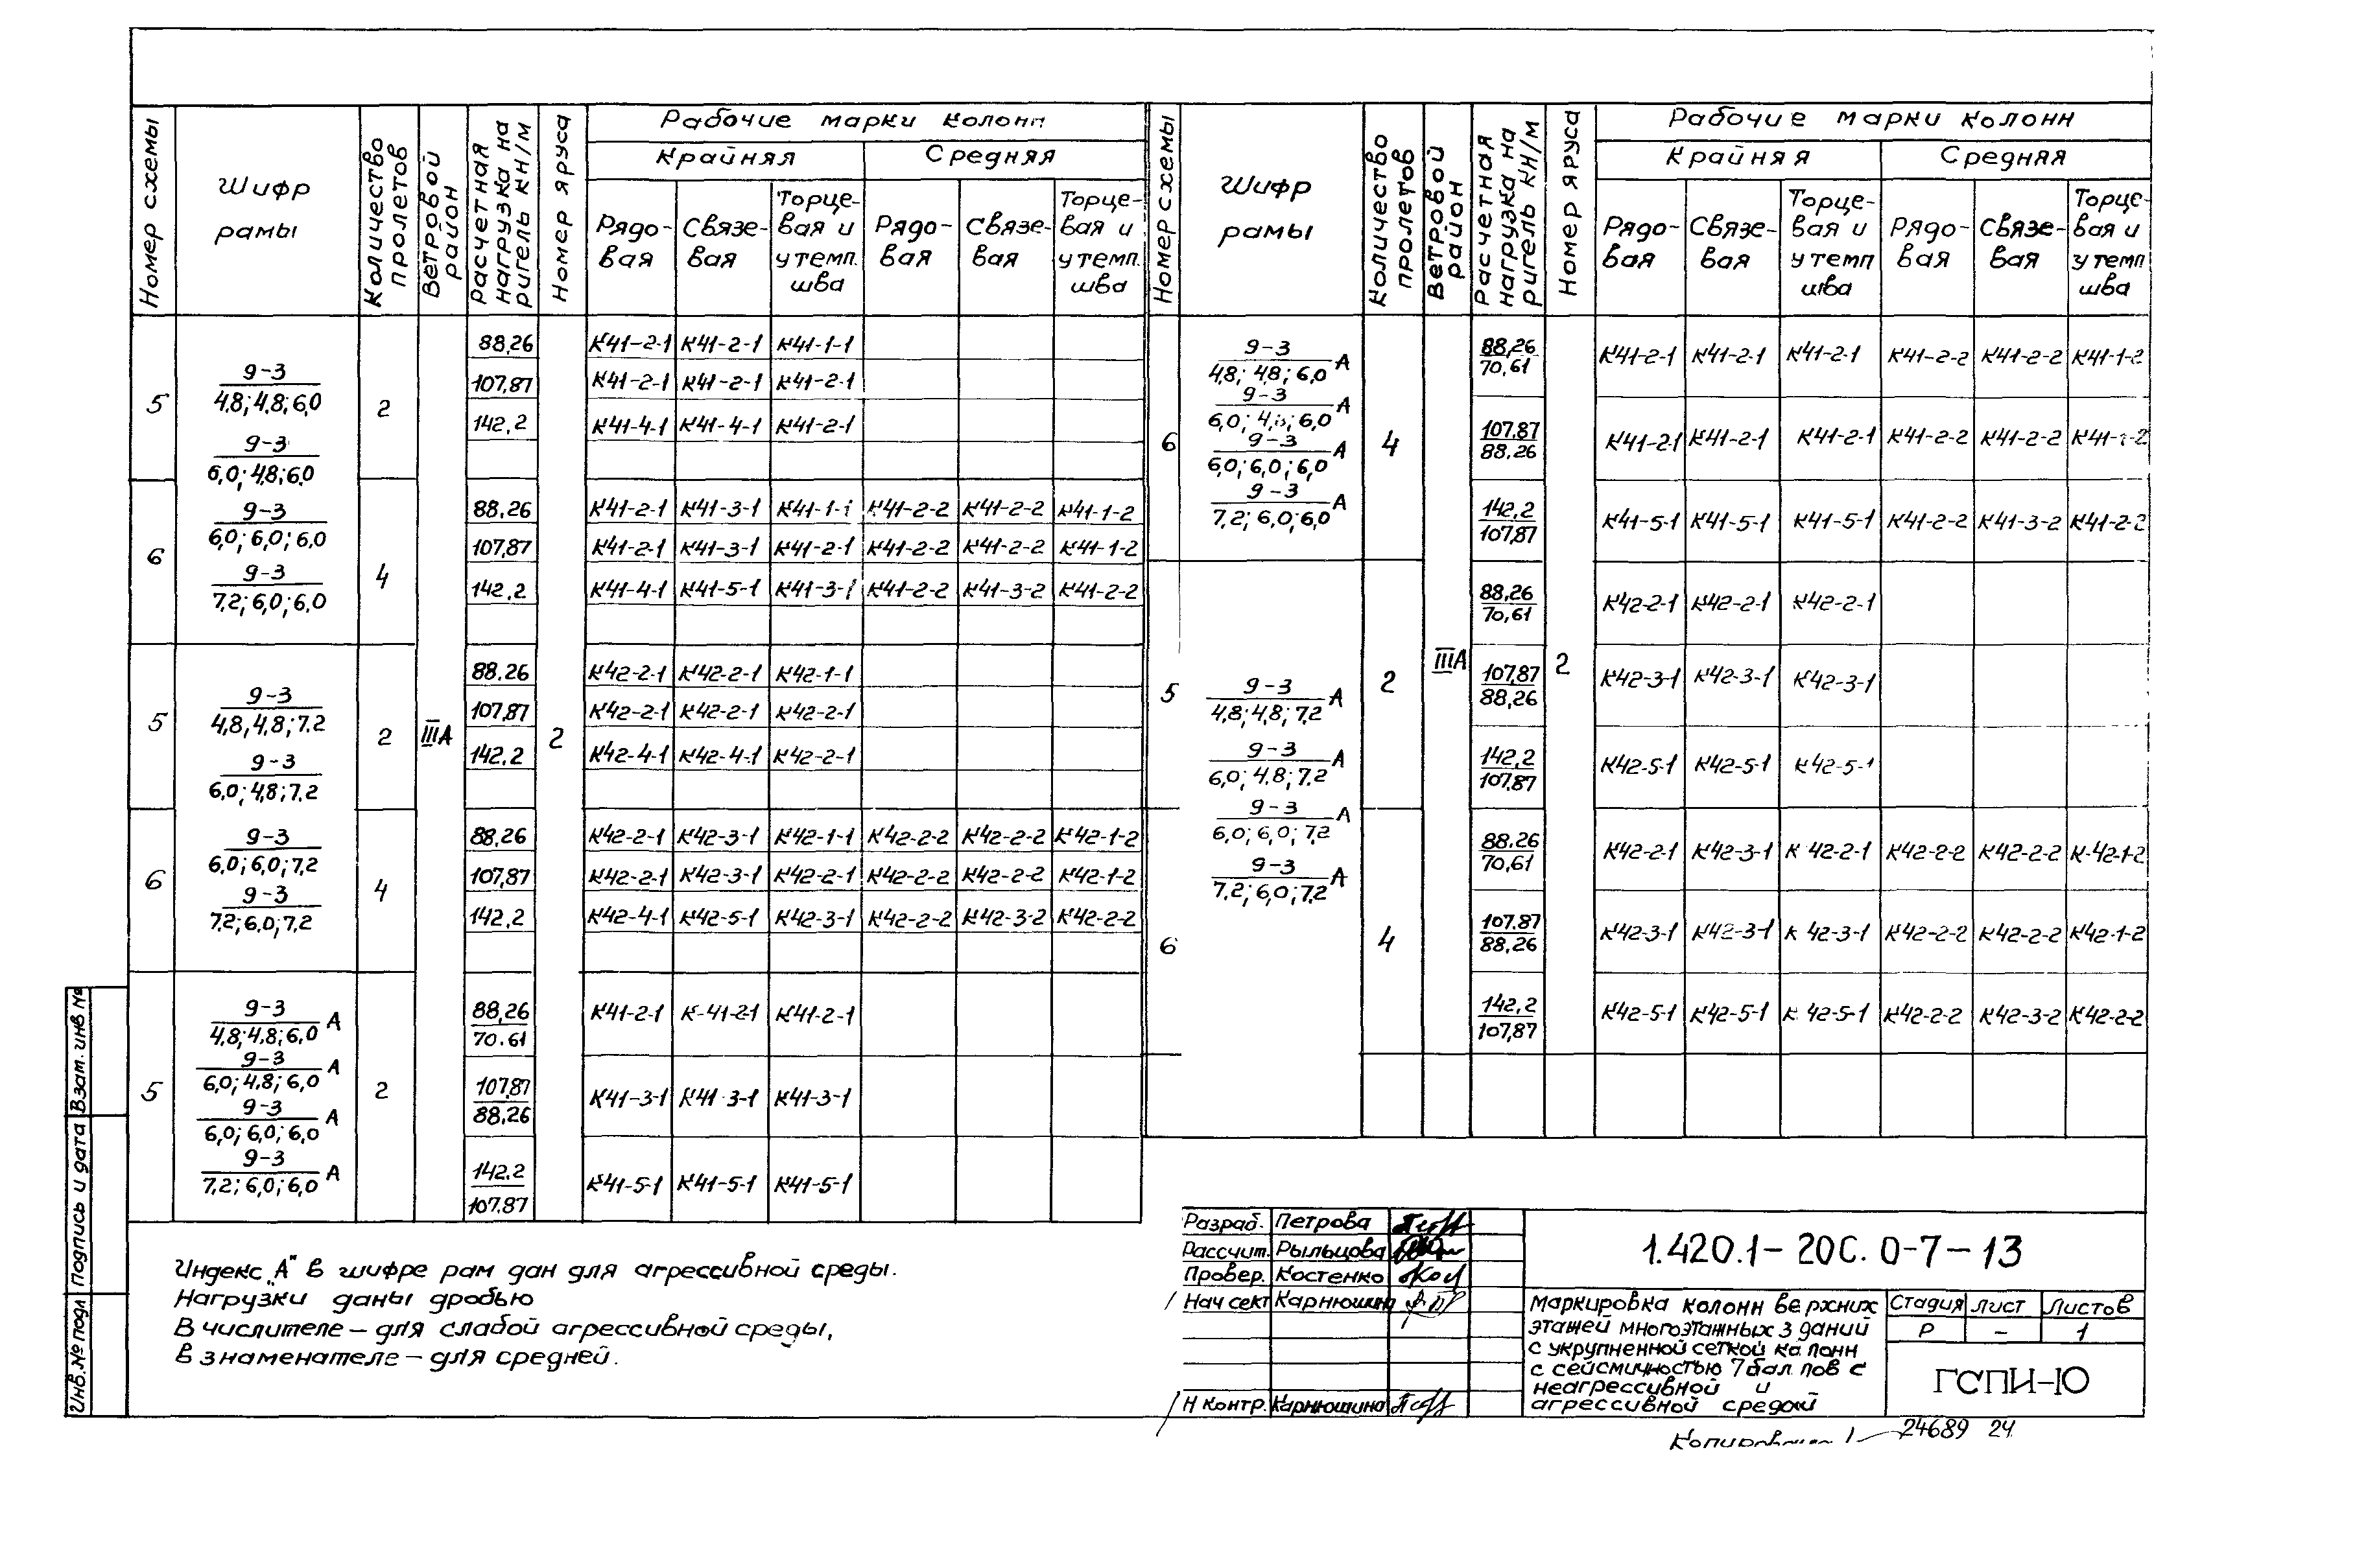 Номер схемы
Шифр рамы
Количество пролетов
Ветровой район
Расчетная нагрузка на ригель кН/м
Номер яруса
Рабочие марки колонн
Крайняя Средняя
Рядовая Связевая Торцевая и у темп. шва Рядовая Связевая Торцевая и у темп. шва
5
9-3
4,8; 4,8; 6,0
9-3
6,0; 4,8; 6,0
9-3
6,0; 6,0; 6,0
9-3
7,2; 6,0; 6,0
2
IIIА
2
88,26 К41-2-1 К41-2-1 К41-1-1
107,87 К41-2-1 К41-2-1 К41-2-1
142,2 К41-4-1 К41-4-1 К41-2-1
6
4
88,26 К41-2-1 К41-3-1 К41-1-1 К41-2-2 К41-2-2 К41-1-2
107,87 К41-2-1 К41-3-1 К41-2-1 К41-2-2 К41-2-2 К41-1-2
142,2 К41-4-1 К41-5-1 К41-3-1 К41-2-2 К41-3-2 К41-2-2
5
9-3
4,8, 4,8; 7,2
9-3
6,0; 4,8; 7,2
9-3
6,0; 6,0; 7,2
9-3
7,2; 6,0; 7,2
2
88,26 К42-2-1 К42-2-1 К42-1-1
107,87 К42-2-1 К42-2-1 К42-2-1
142,2 К42-4-1 К42-4-1 К42-2-1
6
4
88,26 К42-2-1 К42-3-1 К42-1-1 К42-2-2 К42-2-2 К42-1-2
107,87 К42-2-1 К42-3-1 К42-2-1 К42-2-2 К42-2-2 К42-1-2
142,2 К42-4-1 К42-5-1 К42-3-1 К42-2-2 К42-3-2 К42-2-2
5
9-3
4,8; 4,8; 6,0 А
9-3
6,0; 4,8; 6,0 А
9-3
6,0; 6,0; 6,0 А
9-3
7,2; 6,0; 6,0 А
2
88,26
70.61 К41-2-1 К-41-2-1 К41-2-1
107,87
88,26 К41-3-1 К41-3-1 К41-3-1
142,2
107,87 К41-5-1 К41-5-1 К41-5-1
Номер схемы
Шифр рамы
Количество пролетов
Ветровой район
Расчетная нагрузка на ригель кН/м
Номер яруса
Рабочие марки колонн
Крайняя Средняя
Рядовая Связевая Торцевая и у темп шва Рядовая Связевая Торцевая и у темп шва
6
9-3
4,8; 4,8; 6,0 А
9-3
6,0; 4,8; 6,0 А
9-3
6,0; 6,0; 6,0 А
9-3
7,2; 6,0; 6,0 А
4
IIIА
2
88,26
70,61 К41-2-1 К41-2-1 К41-2-1 К41-2-2 К41-2-2 К41-1-2
107,87
88,26 К41-2-1 К41-2-1 К41-2-1 К41-2-2 К41-2-2
142,2
107,87 К41-5-1 К41-5-1 К41-5-1 К41-2-2 К41-3-2 К41-2-2
5
9-3
4,8; 4,8; 7,2 А
9-3
6,0; 4,8; 7,2 А
9-3
6,0; 6,0; 7,2 А
9-3
7,2; 6,0; 7,2 А
2
88,26
70,61 К42-2-1 К42-2-1 К42-2-1
107,87
88,26 К42-3-1 К42-3-1 К42-3-1
142,2
107,87 К42-5-1 К42-5-1 К42-5-1
6
4
88,26
70,61 К42-2-1 К42-3-1 К 42-2-1 К42-2-2 К42-2-2 К-42-1-2
107,87
88,26 К42-3-1 К42-3-1 К 42-3-1 К42-2-2 К42-2-2 К42-1-2
142,2
107,87 К42-5-1 К42-5-1 К 42-5-1 К42-2-2 К42-3-2 К42-2-2
Индекс „А" в шифре рам дан для агрессивной среды.
Нагрузки даны дробью
В числителе – для слабой агрессивной среды,
в знаменателе – для средней.
Взам. инв №
Подпись и дата
Инв. № подл
Разраб. Петрова
Рассчит. Рыльцова
Провер. Костенко
Нач сект Карнюшина
Н контр. Карнюшина
1.420.1-20С. 0-7-13
Маркировка колонн верхних
этажей многоэтажных зданий
с укрупненной сеткой колонн
с сейсмичностью 7 баллов с
неагрессивной и
агрессивной средой
Стадия Лист Листов
Р – 1
ГСПИ-10
24689 24